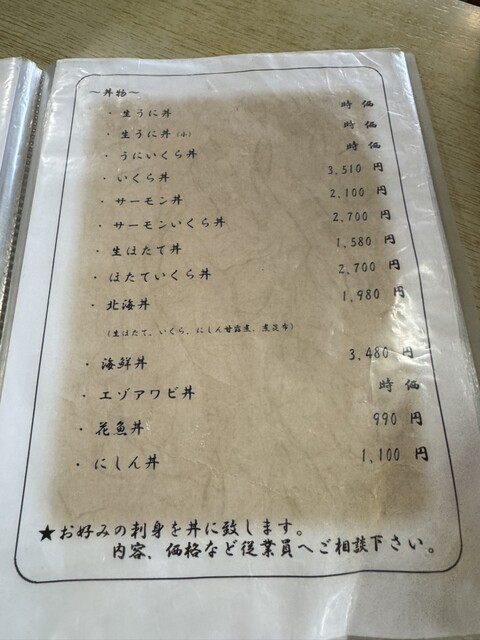 ～丼物～
・生うに丼 時価
・生うに丼(小) 時価
・うにいくら丼 時価
・いくら丼 3,510 円
・サーモン丼 2,100 円
・サーモンいくら丼 2,700 円
・生ほたて丼 1,580 円
・ほたていくら丼 2,700 円
・北海丼 1,980 円
(生ほたて、いくら、にしん甘露煮、煮昆布)
・海鮮丼 3,480 円
・エゾアワビ丼 時価
・花魚丼 990 円
・にしん丼 1,100 円
★お好みの刺身を丼に致します。
内容、価格など従業員へご相談下さい。